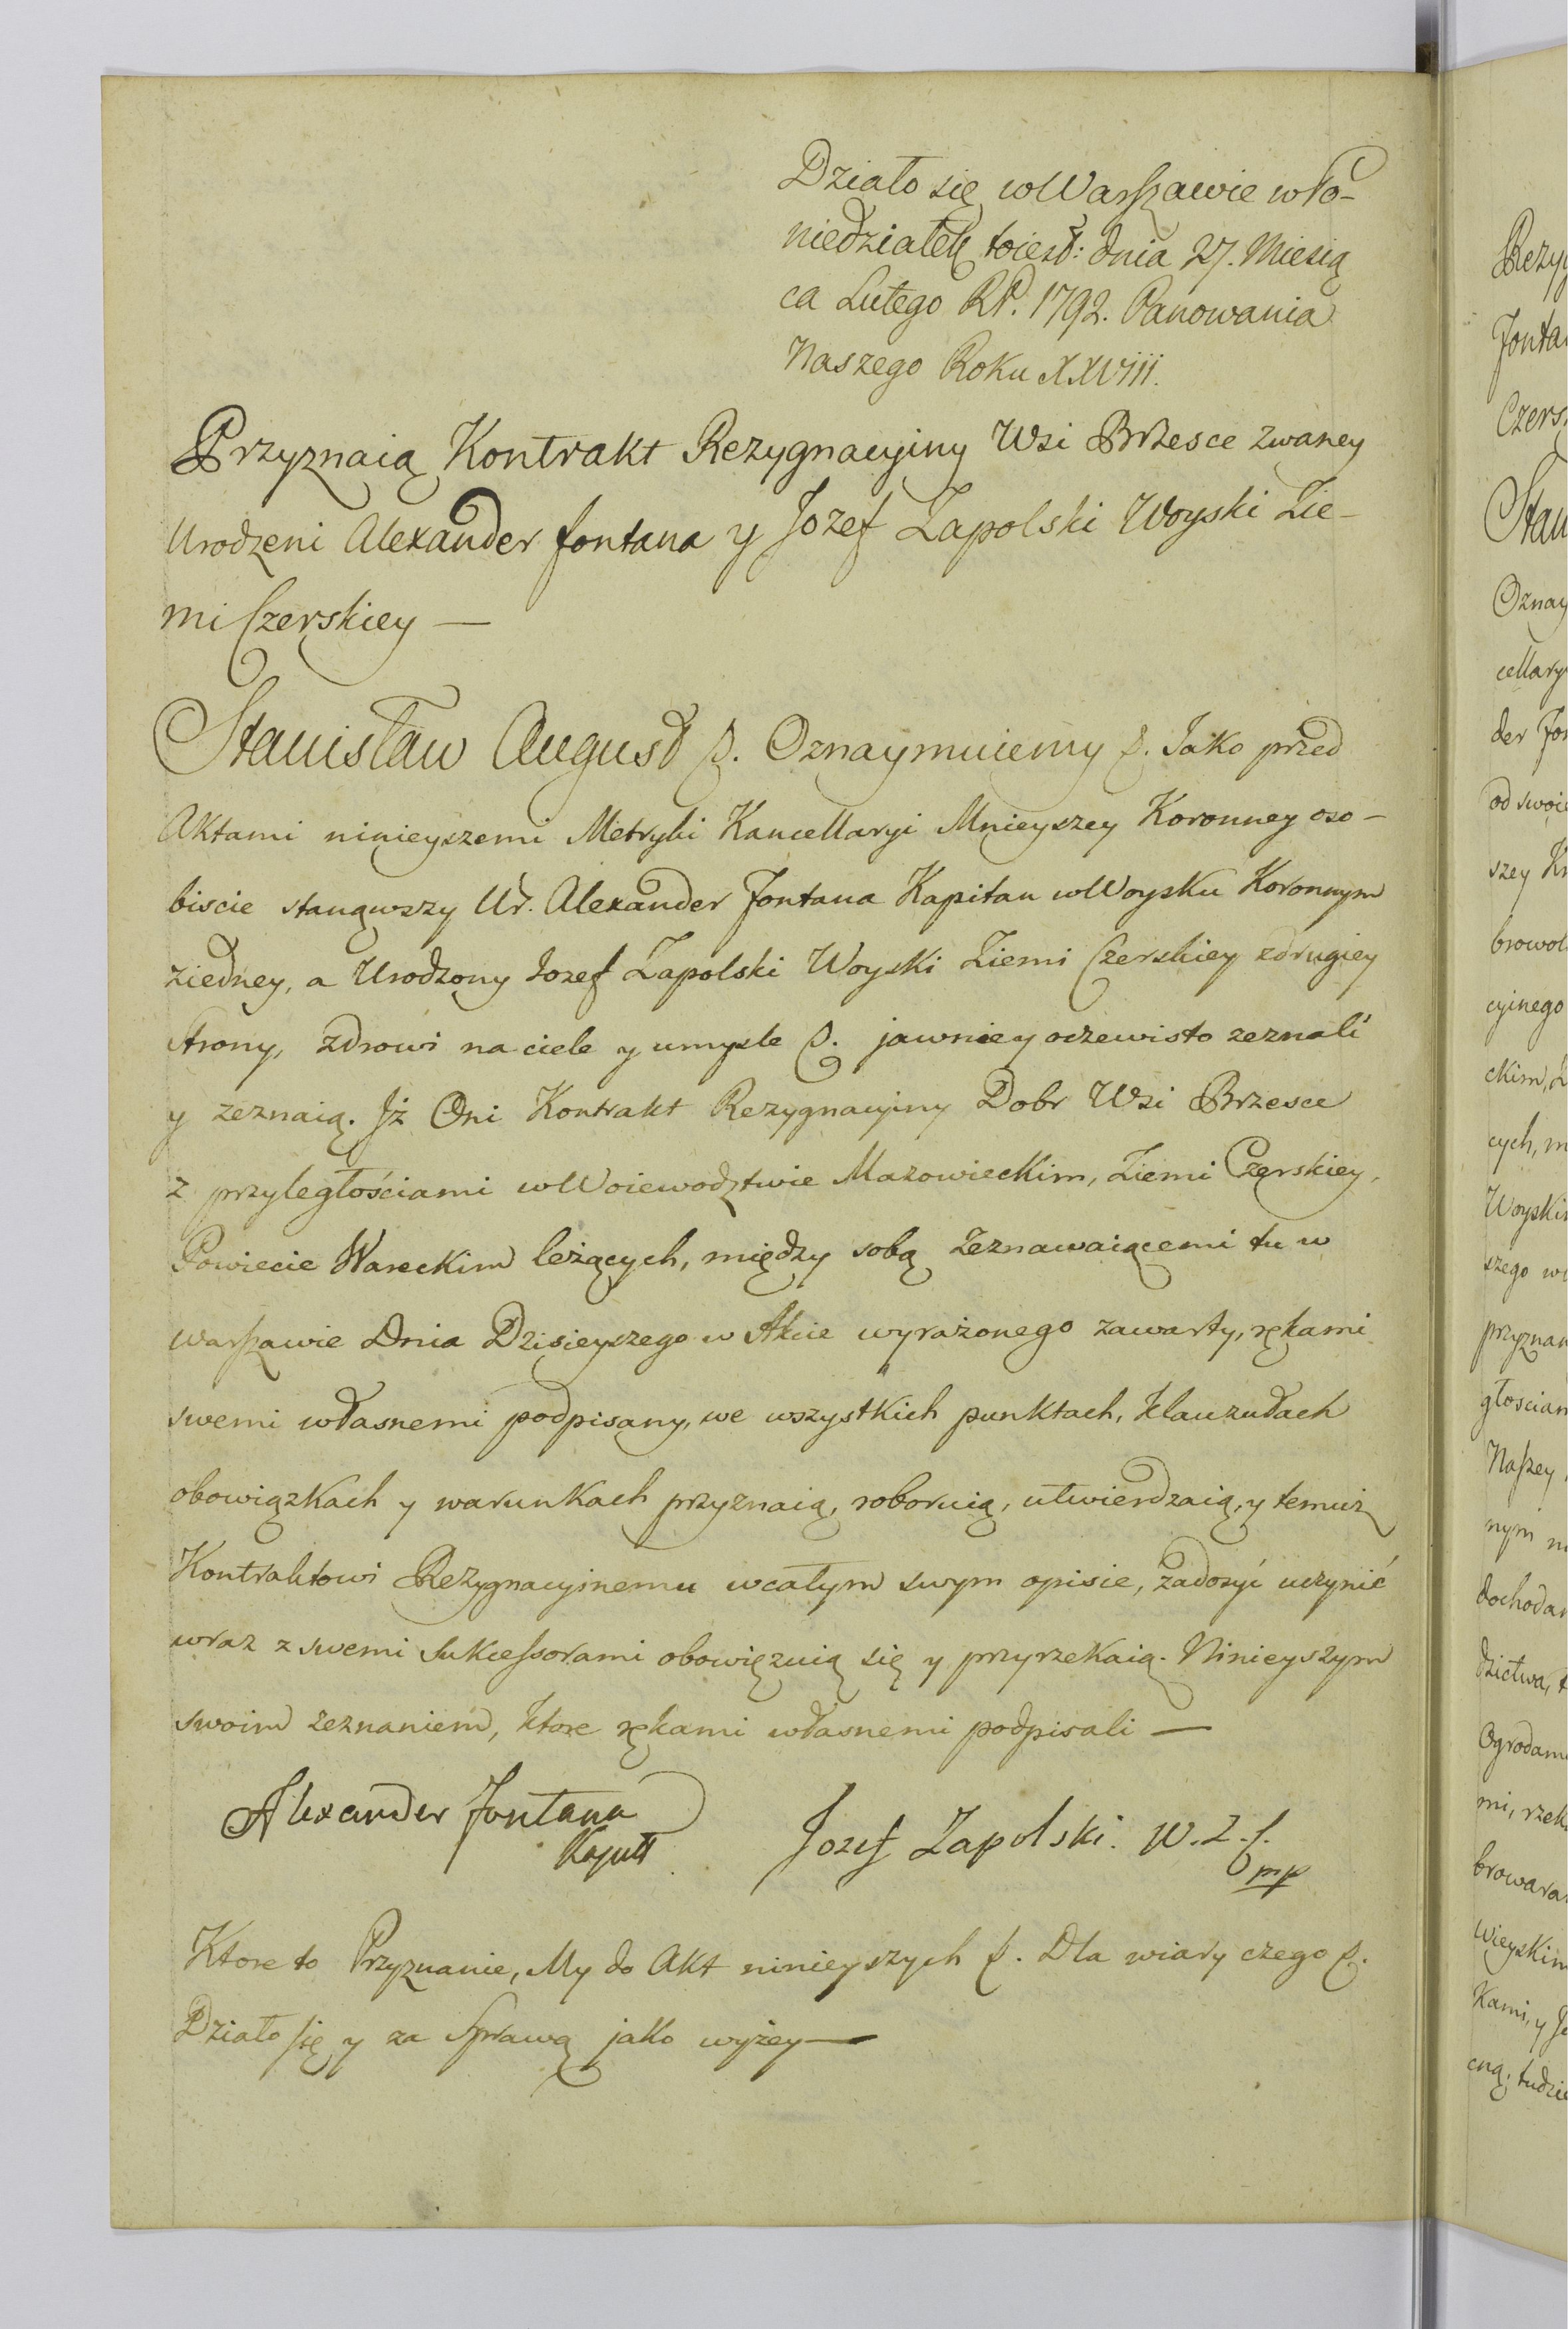 Działo się w Warszawie w Po-
niedziałek toiest: dnia 27. Miesią
ca Lutego RP. 1792. Panowania
Naszego Roku XXVIII.
Przyznaią Kontrakt Rezygnacyiny Wsi Brzesce zwaney
Urodzeni Alexander fontana y Jozef Zapolski Woyski Zie-
mi Czerskiey —
Stanisław August &. Oznaymuiemy &. Jako przed
Aktami ninieyszemi Metryki Kancellaryi Mnieyszey Koronney oso-
biscie stanąwszy Ur. Alexander Fontana Kapitan w Woysku Koronnym
ziedney, a Urodzony Jozef Zapolski Woyski Ziemi Czerskiey zdrugiey
strony, zdrowi na ciele y umysle &. jawnie y oczewisto zeznali
y zeznaią. Jż Oni Kontrakt Rezygnacyiny Dobr Wsi Brzesce
z przyległościami w Woiewodztwie Mazowieckim, Ziemi Czerskiey,
Powiecie Wareckim leżących, między sobą zeznawaiącemi tu w
Warszawie Dnia Dzisieyszego w Akcie wyrażonego zawarty, rękami
swemi własnemi podpisany, we wszystkich punktach, klauzułach
obowiązkach y warunkach przyznaią, roboruią, utwierdzaią, y temuż
Kontraktowi Rezygnacyinemu wcałym swym opisie, zadosyć uczynić
wraz z swemi Sukcessorami obowięzuią się y przyrzekaią. Ninieyszym
swoim zeznaniem, ktore rękami własnemi podpisali —
Alexander Fontana
Kapitt
Jozef Zapolski. W. Z. C.
mp
Ktore to Przyznanie, My do Akt ninieyszych &. Dla wiary czego &.
Działo się y za Sprawą jako wyżey —